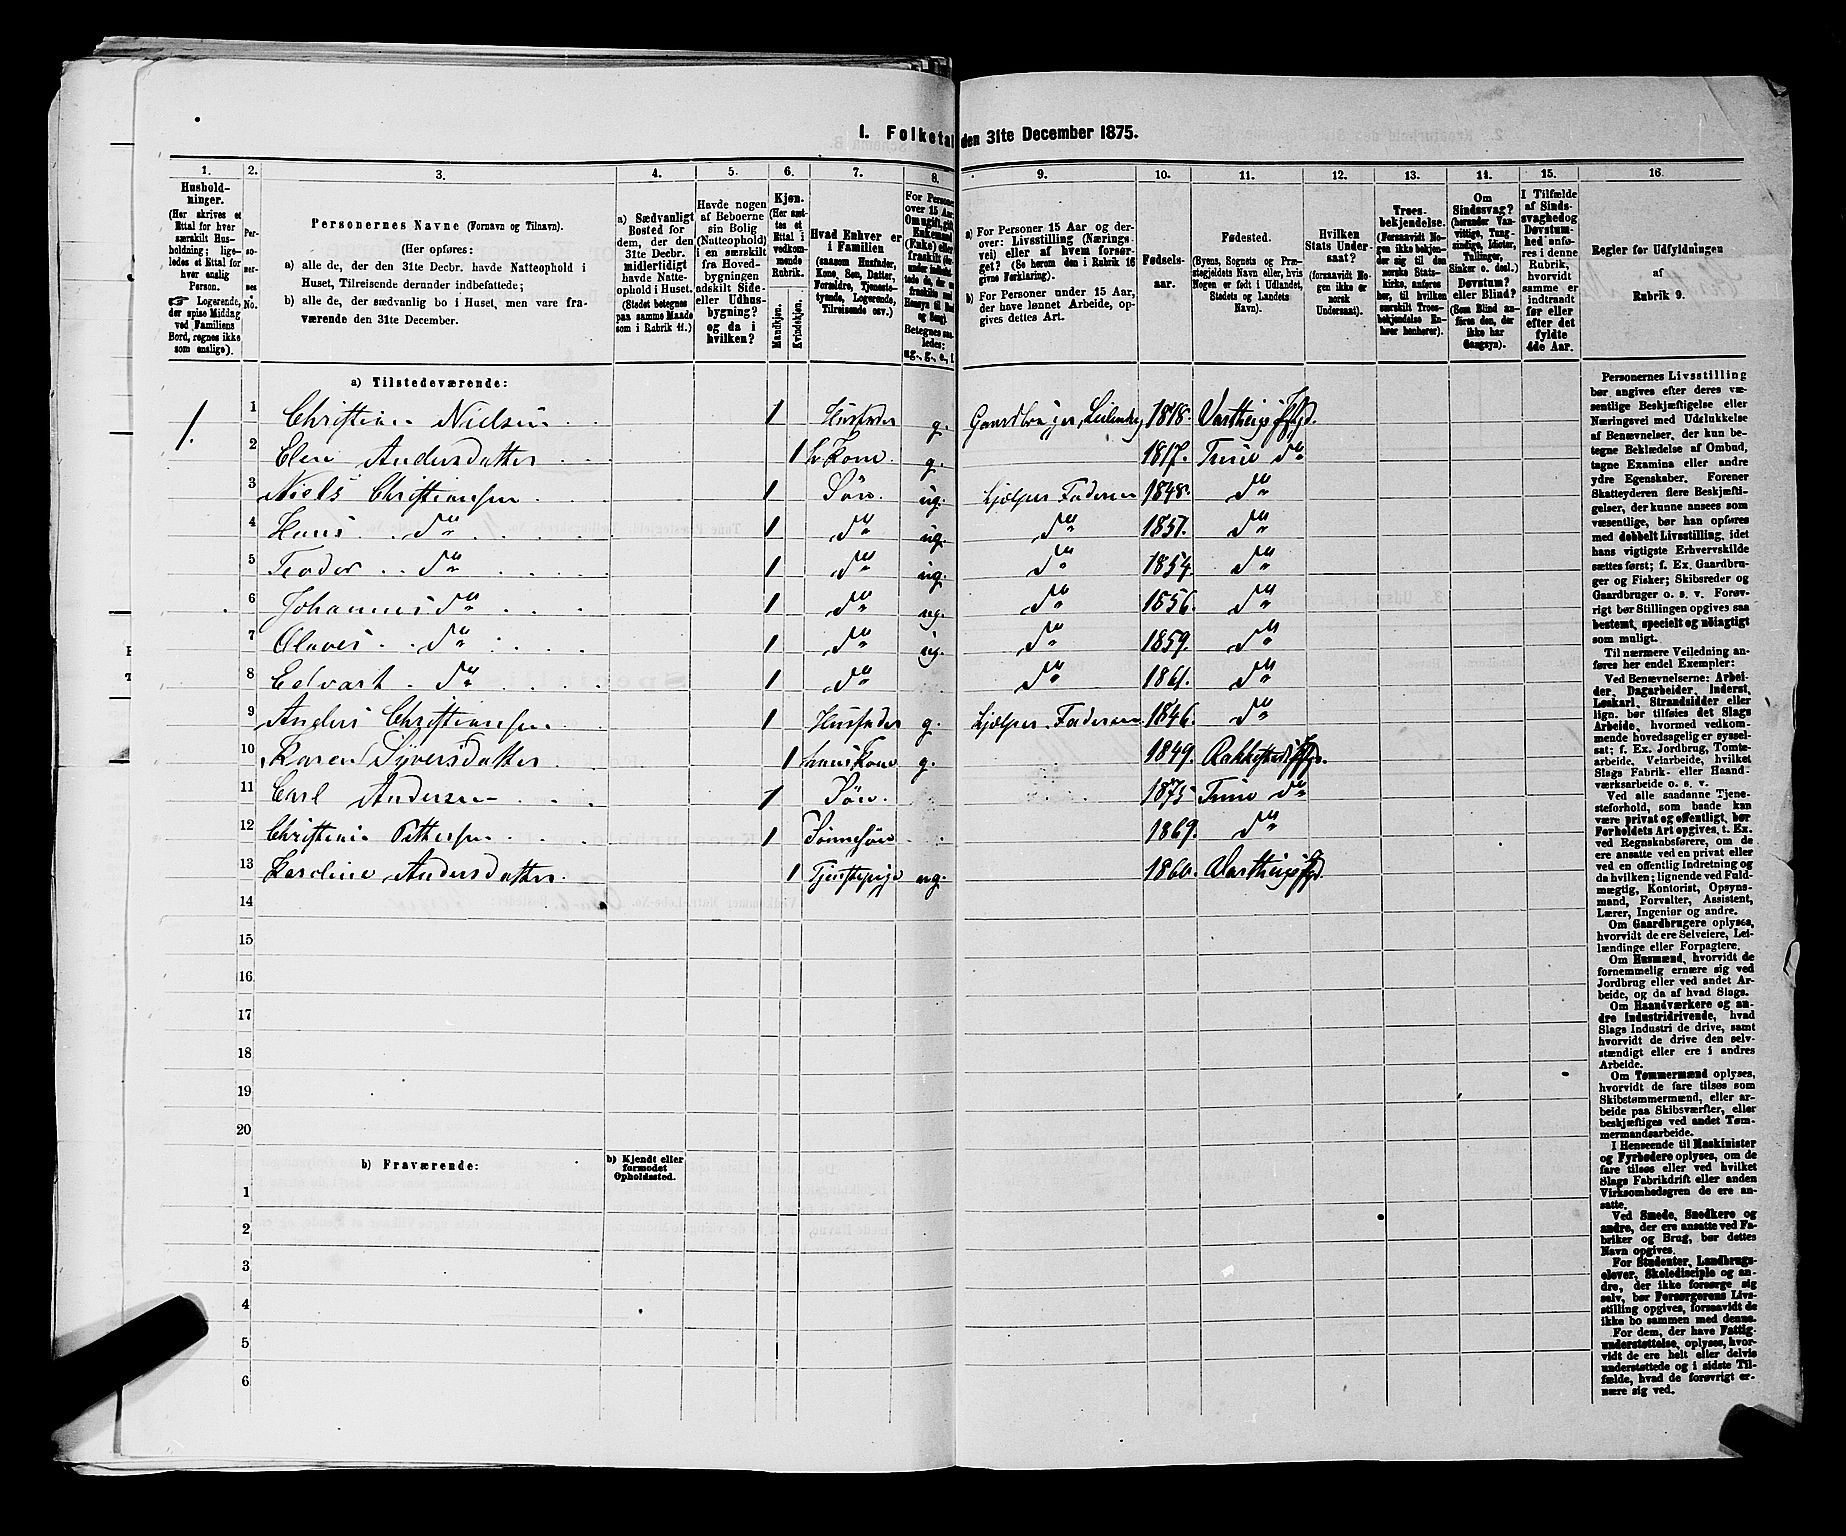 I. Folketal den 31te December 1875.
1. 2. 3. 4. 5. 6. 7. 8. 9. 10. 11. 12. 13. 14. 15. 16.
Hushold-
ninger.
(Her skrives et
Ettal for hver
særskilt Hus-
holdning; lige-
ledes et Ettal for
hver enslig
Person.
Logerende,
der spise Middag
ved Familiens
Bord, regnes ikke
som enslige).
Per-
so-
ner-
nes
No.
Personernes Navne (Fornavn og Tilnavn).
(Her opføres:
a) alle de, der den 31te Decbr. havde Natteophold i
Huset, Tilreisende derunder indbefattede;
b) alle de, der sædvanlig bo i Huset, men vare fra-
værende den 31te December.
a) Sædvanligt
Bosted for
dem, der den
31te Decbr.
midlertidigt
havde Natte-
ophold i Huset.
(Stedet betegnes
paa samme Maade
som i Rubrik 11.)
Havde nogen
af Beboerne
sin Bolig
(Natteophold)
i en særskilt
fra Hoved-
bygningen
adskilt Side-
eller Udhus-
bygning?
og da i
hvilken?
Kjøn.
(Her sæt-
tes et
Ettal i
vedkom-
mende
Rubrik.
Mandkjøn.
Kvindekjøn.
Hvad Enhver er
i Familien
(saasom Husfader,
Kone, Søn, Datter,
Forældre, Tjeneste-
tyende, Logerende,
Tilreisende osv.)
For Personer
over 15 Aar:
Om ugift, gift,
Enkemand
(Enke) eller
fraskilt
Betegnes saa-
ledes:
ug., g., e., f.
a) For Personer 15 Aar og der-
over: Livsstilling (Nærings-
vei) eller af hvem forsør-
get? (Se herom den i Rubrik 16
givne Forklaring).
b) For Personer under 15 Aar,
der have lønnet Arbeide, op-
gives dettes Art.
Fødsels-
aar.
Fødested.
(Byens, Sognets og Præ-
stegjeldets Navn eller, hvis
Nogen er født i Udlandet,
Stedets og Landets
Navn).
Hvilken
Stats Under-
saat?
(forsaavidt No-
gen ikke er
norsk
Undersaat).
Troes-
bekjendelse.
(Forsaavidt No-
gen ikke bekjen-
der sig til den
norske Stats-
kirke, anføres
her, til hvilken
særskilt Troes-
bekjendelse En-
hver henhører).
Om
Sindssvag?
(herunder Van-
vittige, Tung-
sindige, Idioter,
Tullinger,
Sinker o. desl.)
Døvstum?
eller Blind?
(Som Blind an-
føres den, der
ikke har
Gangsyn).
I Tilfælde
af Sinds-
svaghed og
Døvstum-
hed anfø-
res i denne
Rubrik,
hvorvidt
samme er
indtraadt
før eller
efter det
fyldte
4de Aar.
Regler for Udfyldningen
af
Rubrik 9.
a) Tilstedeværende:
1. 1 Christian Nielsen 1 Husfader g. Gaardbruger, Leilending 1818. Varteig Pgd.
2 Eleni Andersdatter 1 h. Kone g. 1817. Tune do
3 Niels Christiansen 1 Søn ug. hjelper Faderen 1848. do
4 Hans do 1 do ug. do 1851. do
5 Teodor do 1 do ug. do 1854. do
6 Johannes do 1 do ug. do 1856. do
7 Olaves do 1 do ug. do 1859. do
8 Edvart do 1 do do 1861. do
9 Anders Christiansen 1 Husfader g. hjelper Faderen 1846. do
10 Karen Syversdatter 1 hans Kone g. 1849. Rakkestad Pgd.
11 Carl Andersen 1 Søn 1875 Tune do
12 Christian Pettersen 1 Sønnesøn 1869. do
13 Karoline Andersdatter 1 Tjenstepige ug. 1860. Varteig Pgd
14
15
16
17
18
19
20
b) Fraværende:
b) Kjendt eller
formodet
Opholdssted.
1
2
3
4
5
6
Personernes Livsstilling
bør angives efter deres væ-
sentlige Beskjæftigelse eller
Næringsvei med Udelukkelse
af Benævnelser, der kun be-
tegne Beklædelse af Ombud,
tagne Examina eller andre
ydre Egenskaber. Forener
Skatteyderen flere Beskjæfti-
gelser, der kunne ansees som
væsentlige, bør han opføres
med dobbelt Livsstilling, idet
hans vigtigste Erhvervskilde
sættes først; f. Ex. Gaardbru-
ger og Fisker; Skibsreder og
Gaardbruger o. s. v. Forøv-
rigt bør Stillingen opgives saa
bestemt, specielt og nøiagtigt
som muligt.
Til nærmere Veiledning an-
føres her endel Exempler:
Ved Benævnelserne: Arbei-
der, Dagarbeider, Inderst,
Løskarl, Strandsidder eller
lign. bør tilføies det Slags
Arbeide, hvormed vedkom-
mende hovedsagelig er syssel-
sat; f. Ex. Jordbrug, Tomte-
arbeide, Veiarbeide, hvilket
Slags Fabrik- eller Haand-
værksarbeide o. s. v.
Ved alle saadanne Tjene-
steforhold, som baade kan
være privat og offentligt, bør
Forholdets Art opgives, t. Ex.
ved Regnskabsførere, om de
ere ansatte ved en privat eller
ved en offentlig Indretning og
da hvilken; lignende ved Fuld-
mægtig, Kontorist, Opsyns-
mand, Forvalter, Assistent,
Lærer, Ingeniør og andre.
Om Gaardbrugere oplyses,
hvorvidt de ere Selveiere, Lei-
lændinge eller Forpagtere.
Om Husmænd, hvorvidt de
fornemmelig ernære sig ved
Jordbrug eller ved andet Ar-
beide, og da af hvad Slags.
Om Haandværkere og an-
dre Industridrivende, hvad
Slags Industri de drive, samt
hvorvidt de drive den selv-
stændigt eller ere i andres
Arbeide.
Om Tømmermænd oplyses,
hvorvidt de fare tilsøs som
Skibstømmermænd, eller ar-
beide paa Skibsværfter, eller
beskjæftiges ved andet Tøm-
mermandsarbeide.
I Henseende til Maskinister
og Fyrbødere oplyses, om de
fare tilsøs eller ved hvilket
Slags Fabrikdrift eller anden
Virksomhedsgren de ere an-
satte.
Ved Smede, Snedkere og
andre, der ere ansatte ved Fa-
briker og Brug, bør dettes
Navn opgives.
For Studenter, Landbrugs-
elever, Skoledisciple og an-
dre, der ikke forsørge sig
selv, bør Forsørgerens Livs-
stilling opgives, forsaavidt de
ikke bo sammen med denne.
For dem, der have Fattig-
understøttelse, oplyses, hvor-
vidt de ere helt eller delvis
understøttede og i sidste Til-
fælde, hvad de forøvrigt er-
nære sig ved.